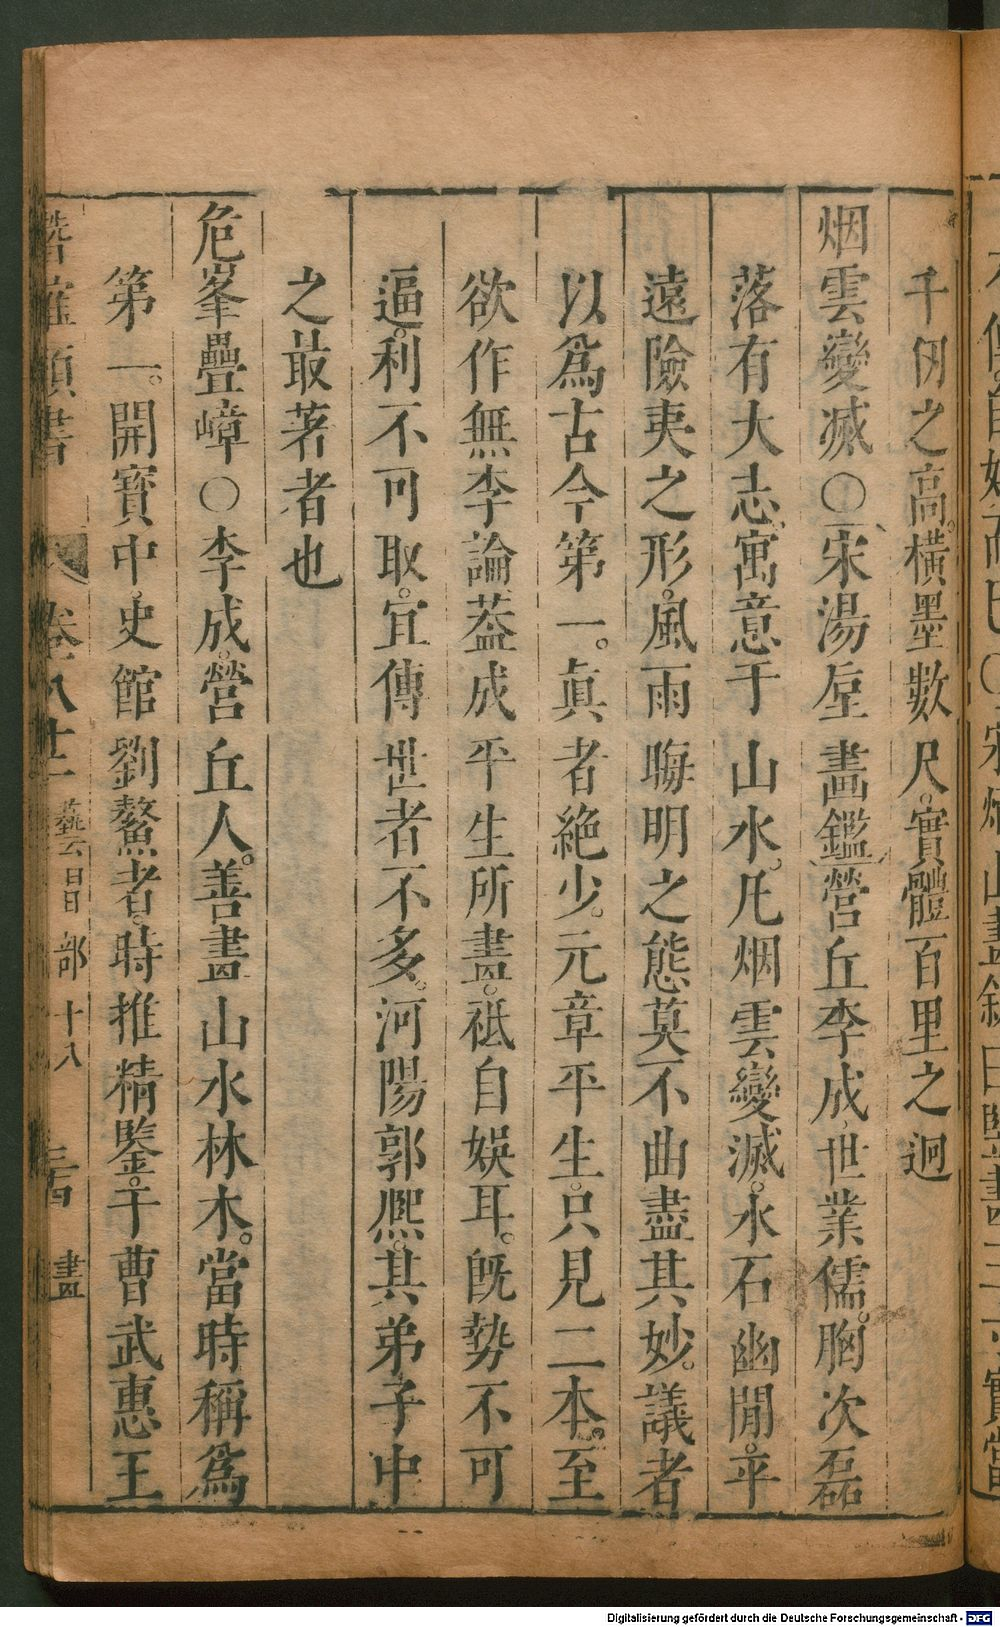 千仞之高。橫墨數尺。實體百里之迥
烟雲變滅〇宋湯垕畫鑑。營丘李成。世業儒。胸次磊
落有大志。寓意于山水。凡烟雲變滅。水石幽閒。平
遠險夷之形。風雨晦明之態莫不曲盡其妙。議者
以爲古今第一。眞者絶少。元章平生。只見二本。至
欲作無李論葢成平生所畫。祗自娛耳。旣勢不可
逼。利不可取。宜傳世者不多。河陽郭熈。其弟子中
之㝡著者也
危峯疊嶂〇李成。營丘人。善畫山水林木。當時稱爲
第一。開寶中。史館劉鰲者。時推精鑒。于曹武惠王
潛確類書 卷八十二 藝習部十八 三十四 畫
Digitalisierung gefördert durch die Deutsche Forschungsgemeinschaft - DFG